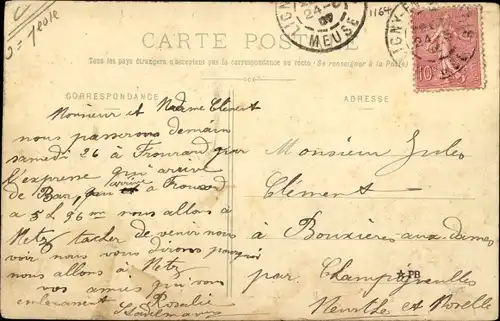 1164
LIGNY
24
MEUSE
LIGNY
24
10
CARTE POSTALE
Tous les pays étrangers n'acceptent pas la correspondance au recto. (Se renseigner à la Poste)
CORRESPONDANCE
ADRESSE
Monsieur et Madame Clément
nous passerons demain
samedi 26 à Frouard par
l'expresse qui arrive
de Bar, qui arrive à Frouard
à 5 h 26 m nous allons à
Metz tacher de venir nous
voir nous vous dirons pourquoi
nous allons à Metz
vos amies qui vous
embrassent Rosalie
Monsieur Jules
Clément
à Bouxières aux dames
par Champigneulles
Meurthe et Moselle
APB